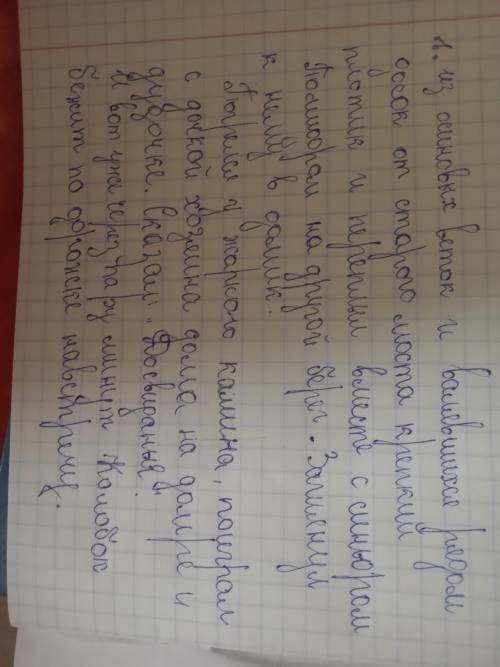 1. из осиновых веток и валевшихся рядом
досок от старого моста крепкий
плотик и переплыл вместе с синьором
Помидором на другой берег. Заглянул
к нему в домик.
Погрелся у жаркого камина, поиграл
с дочкой хозяина дома на домре и
дудочке. Сказал: "Досвиданья".
И вот уже через пару минут Колобок
бежит по дорожке навстречу.